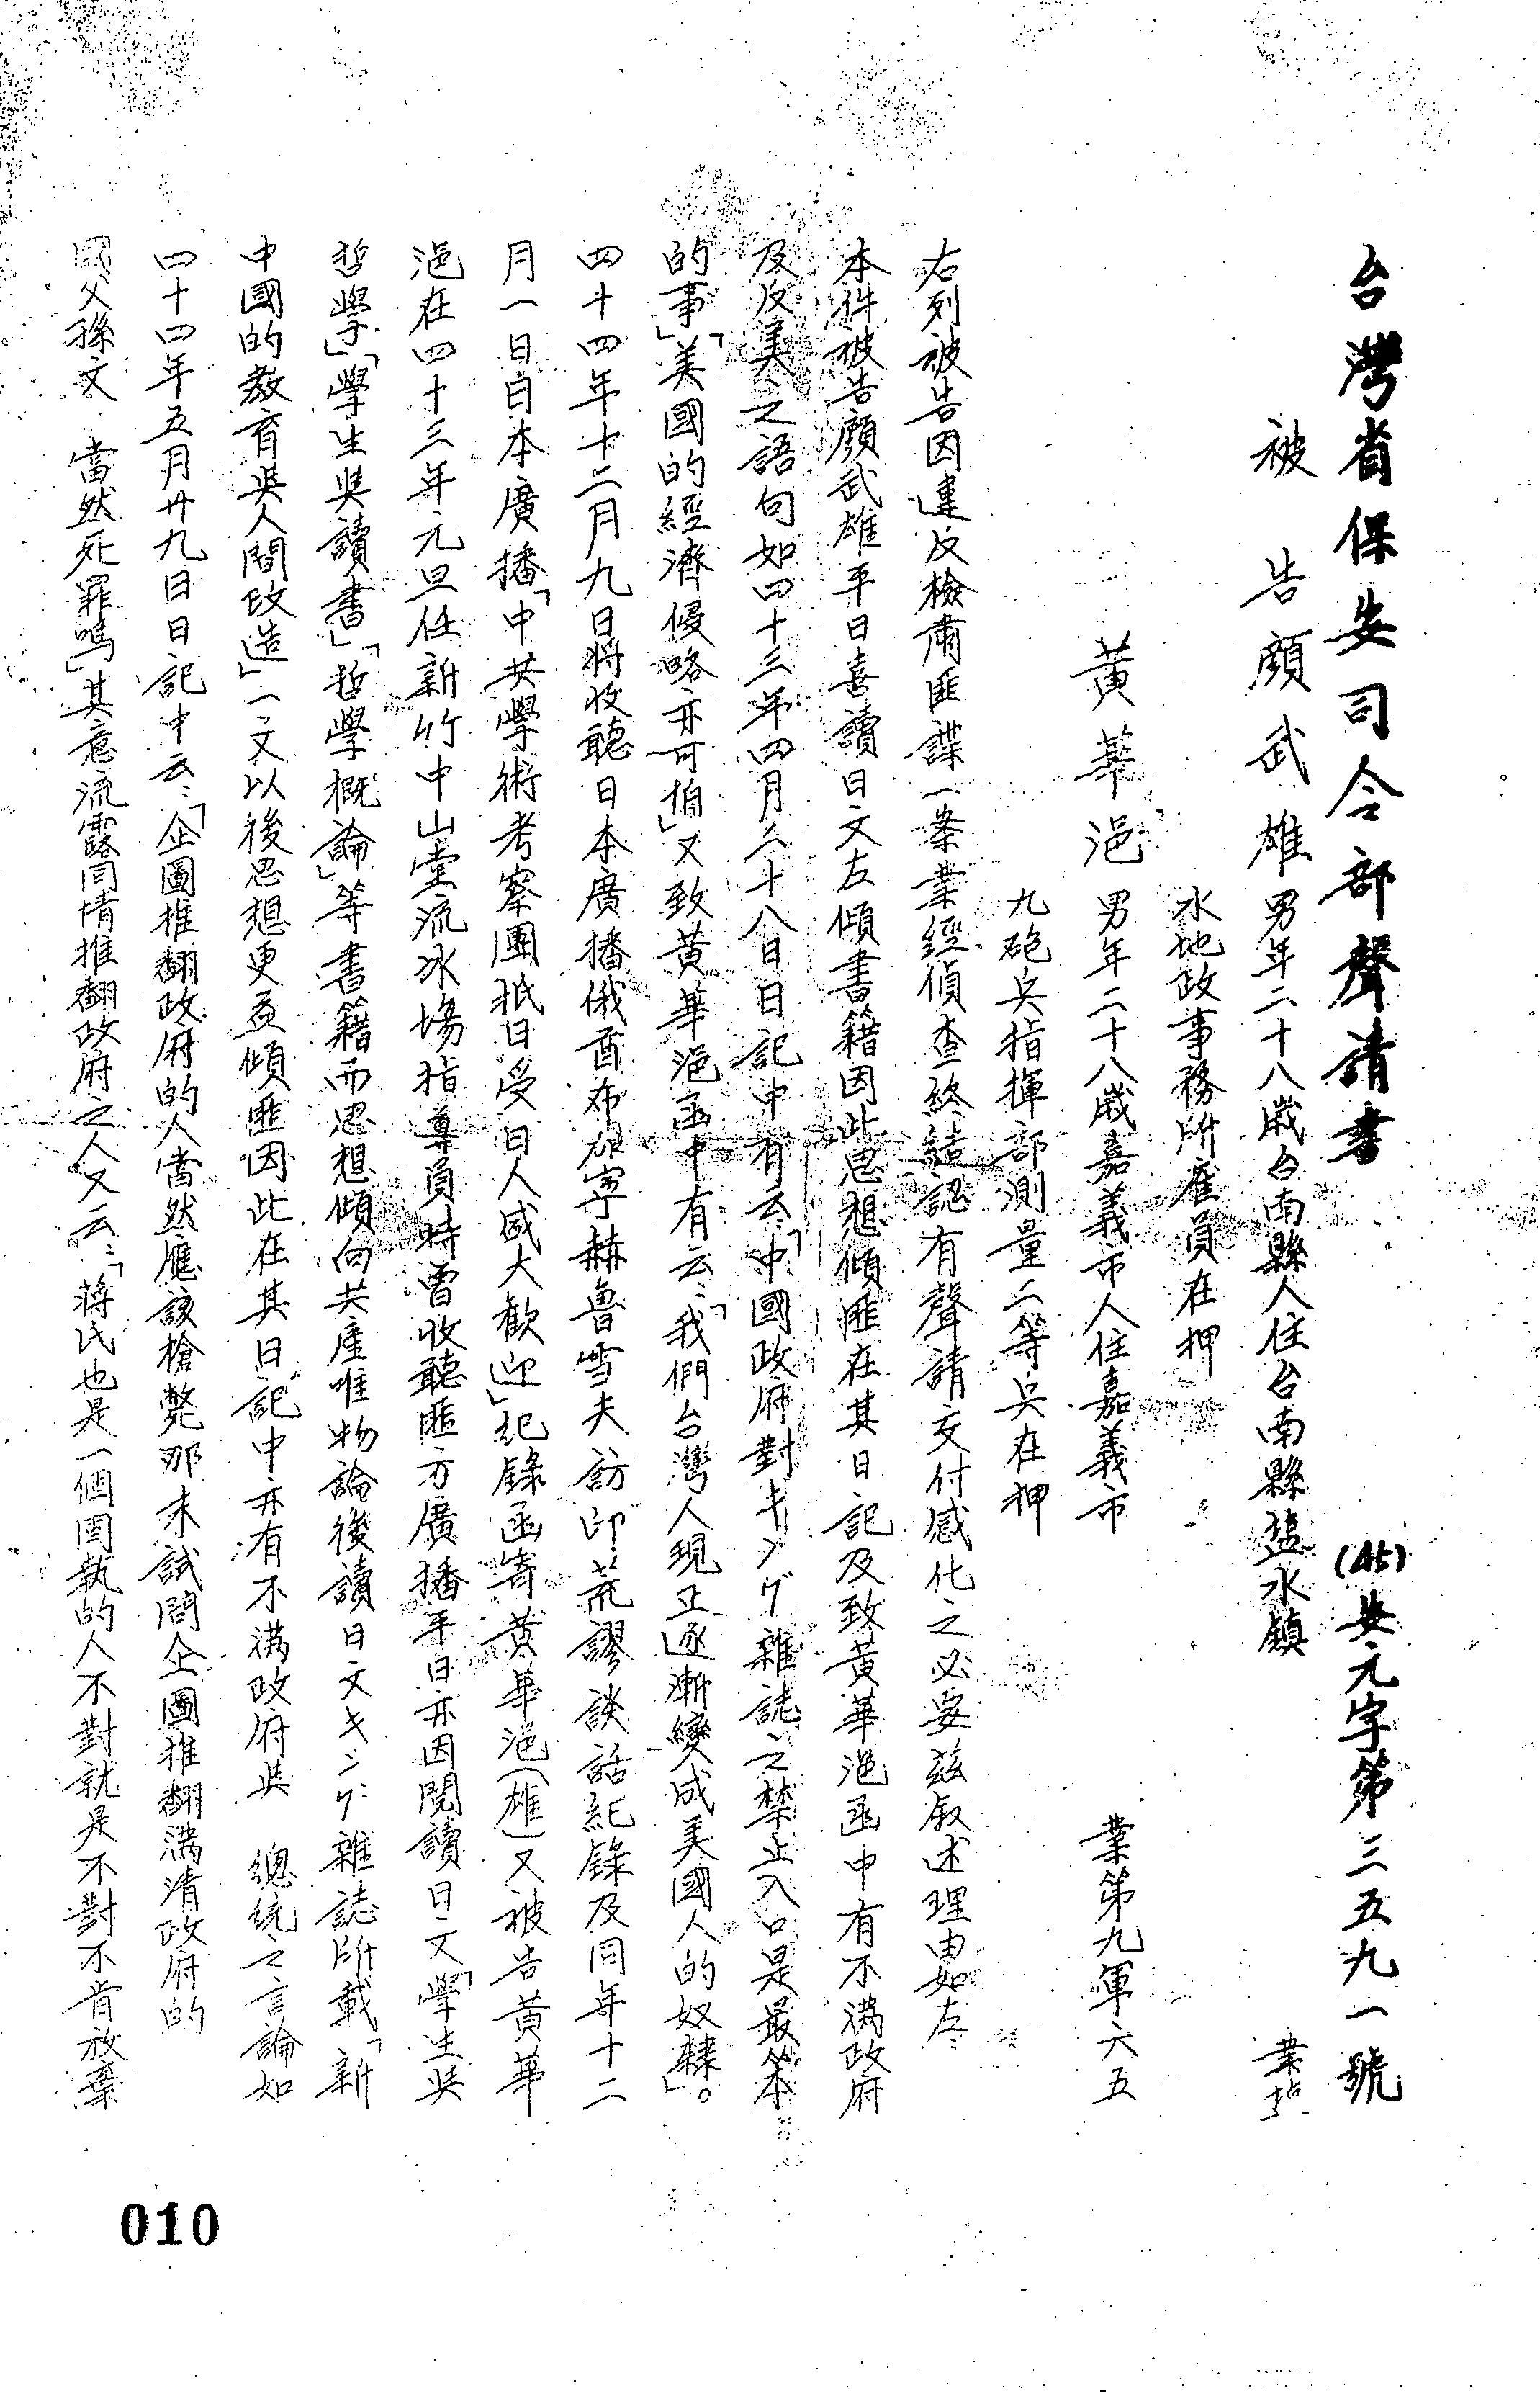 台灣省保安司令部聲請書 (45)安元字第三五九一號
被告顏武雄 男年二十八歲台南縣人住台南縣盐水鎮 業塩
水地政事務所雇員在押
黃華浥 男年二十八歲嘉義市人住嘉義市 業第九軍六五
九砲兵指揮部測量二等兵在押
右列被告因違反檢肅匪諜一案業經偵查終結認有聲請交付感化之必要茲叙述理由如左
本件被告顏武雄平日喜讀日文左傾書籍因此思想傾匪在其日記及致黃華浥函中有不滿政府
及反美之語句如四十三年四月二十八日日記中有云：「中國政府對キング雜誌之禁止入口是最笨
的事」「美國的經濟侵略亦可怕」又致黃華浥函中有云：「我們台灣人現正逐漸變成美國人的奴隸」。
四十四年十二月九日將收聽日本廣播俄酋布加寧赫魯雪夫訪印荒謬談話紀錄及同年十二
月一日日本廣播「中共學術考察團抵日受日人盛大歡迎」紀錄函寄黃華浥(雄)又被告黃華
浥在四十三年元旦任新竹中山堂流冰場指導員時曾收聽匪方廣播平日亦因閱讀日文「學生與
哲學」「學生與讀書」「哲學概論」等書籍而思想傾向共產唯物論後讀日文キング雜誌所載「新
中國的教育與人間改造」一文以後思想更益傾匪因此在其日記中亦有不滿政府與 總統之言論如
四十四年五月廿九日日記中云：「企圖推翻政府的人當然應該槍斃那末試問企圖推翻滿清政府的
國父孫文 當然死罪嗎」其意流露同情推翻政府之人又云：「蔣氏也是一個固執的人不對就是不對不肯放棄
010